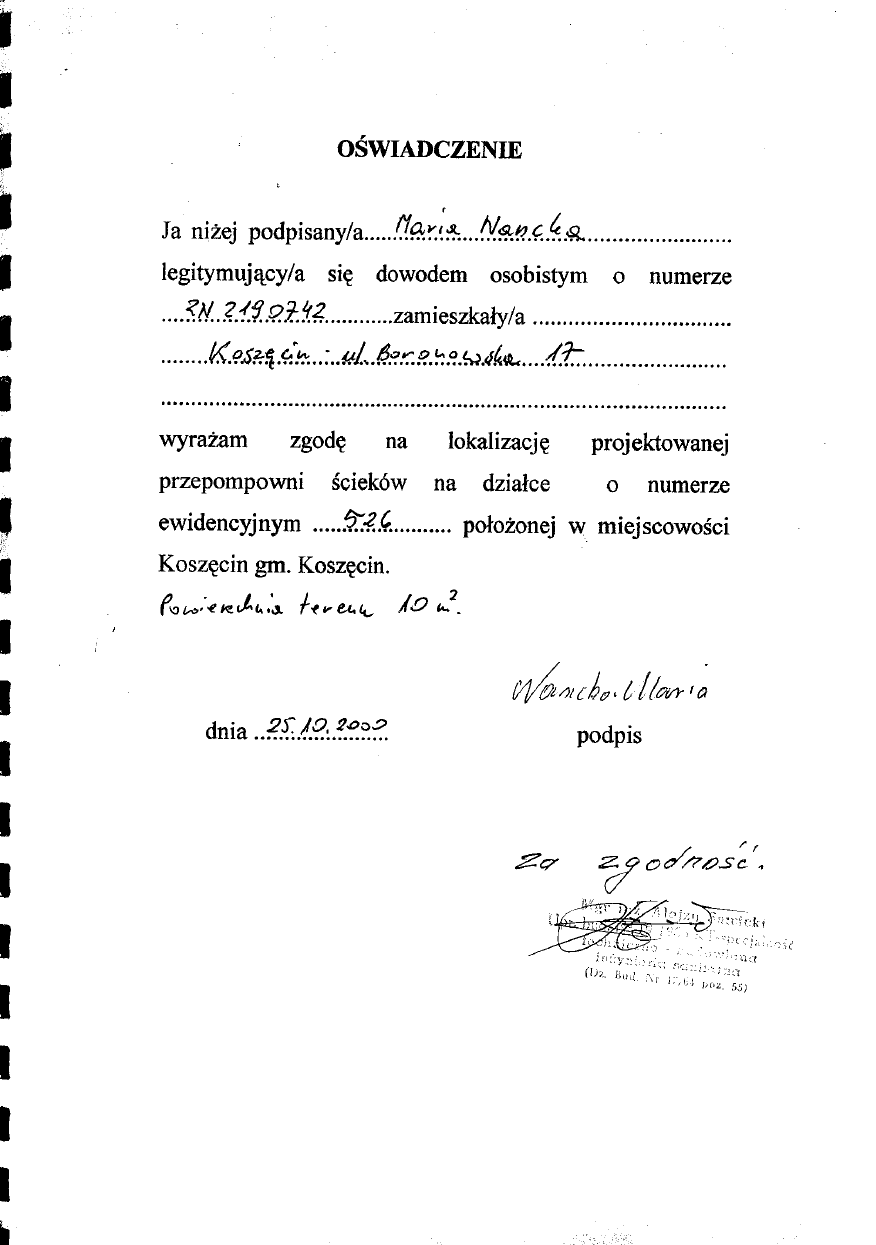 OŚWIADCZENIE
Ja niżej podpisany/a.....Maria Wancka..........................
legitymujący/a się dowodem osobistym o numerze
....ZN 2190742...........zamieszkały/a .................................
........Koszęcin ul. Boronowska 17........................
...............................................................................................
wyrażam zgodę na lokalizację projektowanej
przepompowni ścieków na działce o numerze
ewidencyjnym .....526.......... położonej w miejscowości
Koszęcin gm. Koszęcin.
Powierzchnia terenu 10 m².
Maria
dnia ..25.10.2000
podpis
za zgodność.
Mgr inż. Alojzy
specjalność
inżynieria sanitarna
(Dz. Bud. Nr poz. 55)